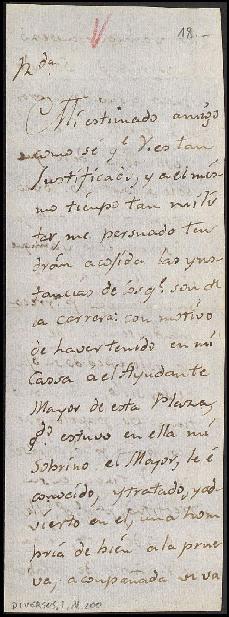 18.
R.da
Mi estimado amigo
como se q.e V. es tan
Justificado, y al mis-
mo tiempo tan milit
tar, me persuado ten
drán acojida las yns
tancias de los q.e son de
la carrera: con motivo
de haver tenido en mi
Cassa a el Ayudante
Mayor de esta Plaza,
q.do estuvo en ella mi
Sobrino el Mayor, le é
conocido, y tratado, y ad
vierto en el, una hom
bria de bien a la prue
va, acompañada
DIVERSOS, 1, N. 200